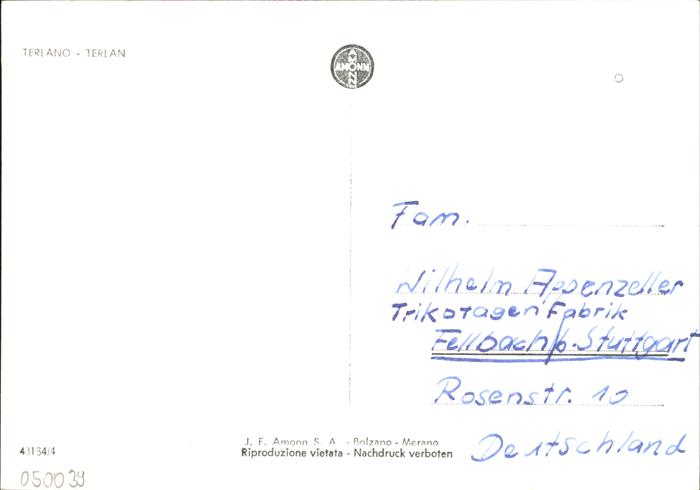 TERLANO - TERLAN
AMONN
Fam.
Wilhelm Appenzeller
Trikotagen Fabrik
Fellbach b. Stuttgart
Rosenstr. 10
Deutschland
43164/4
J. F. Amonn S. A. - Bolzano - Merano
Riproduzione vietata - Nachdruck verboten
050039